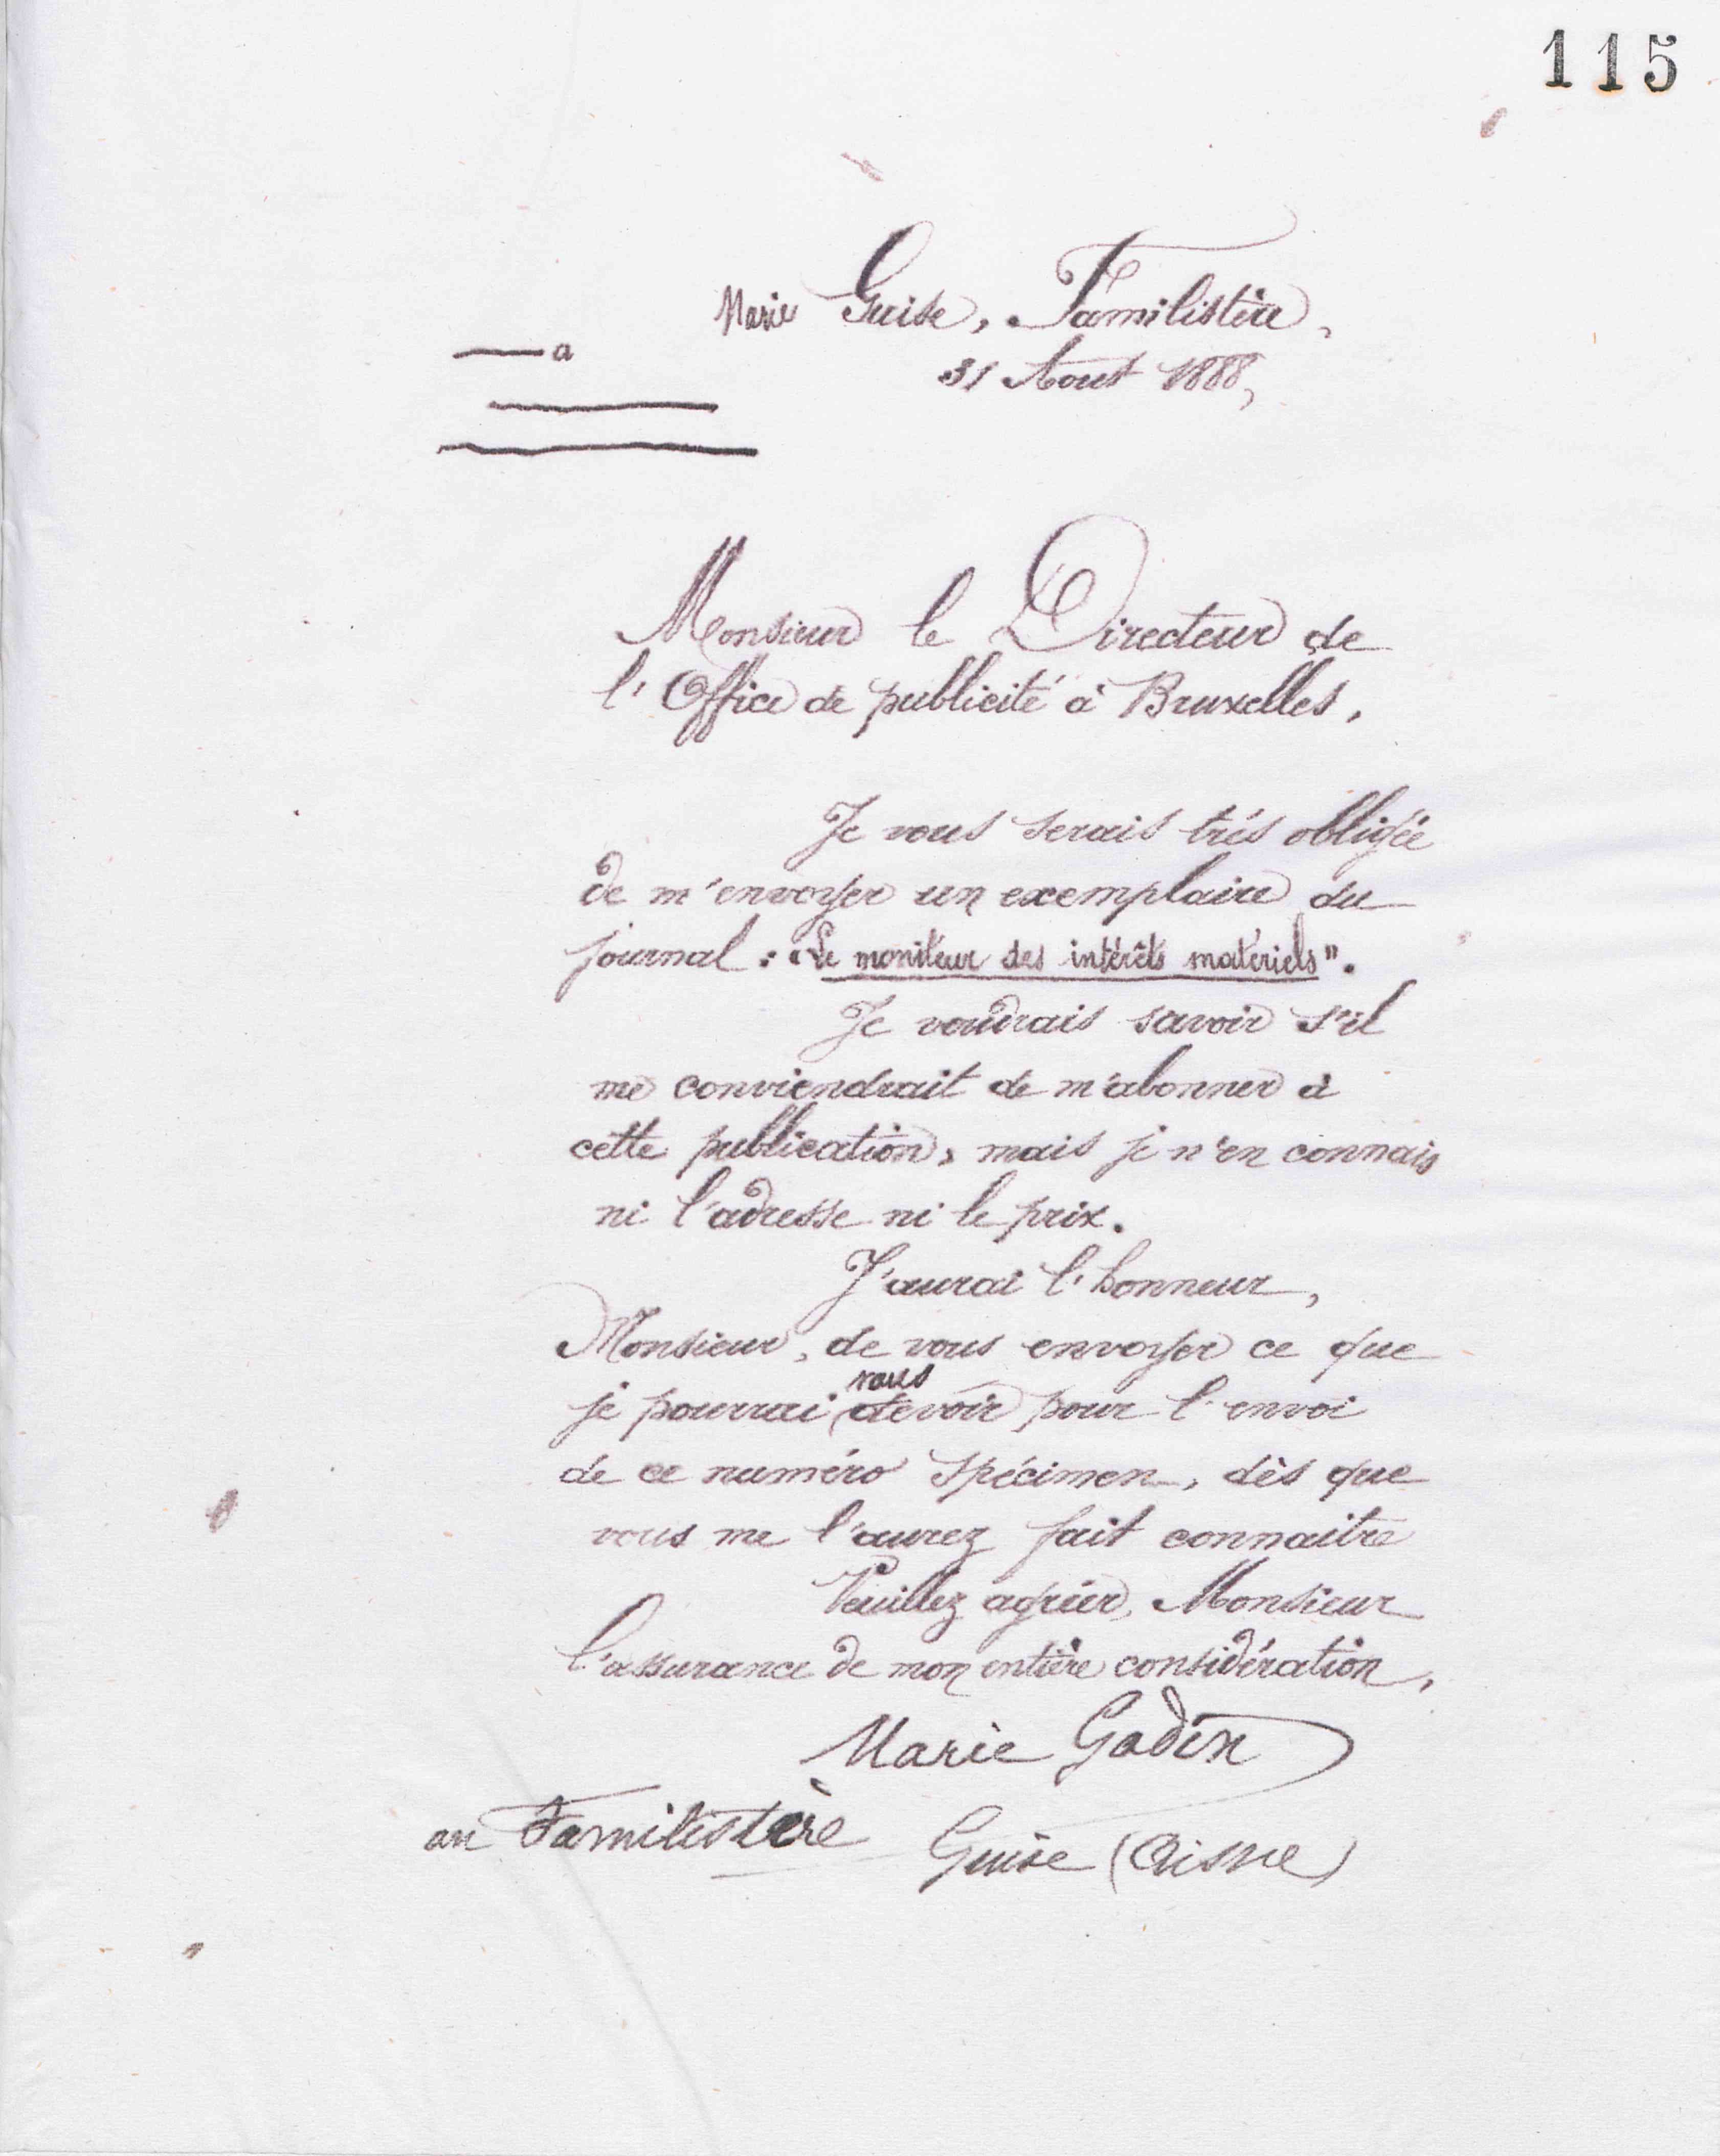 115
Marie Guise, Familistère,
a
31 Aout 1888,
Monsieur le Directeur de
l'Office de publicité à Bruxelles,
Je vous serais très obligée
de m'envoyer un exemplaire du
journal : "Le moniteur des intérêts matériels".
Je voudrais savoir s'il
me conviendrait de m'abonner à
cette publication, mais je n'en connais
ni l'adresse ni le prix.
J'aurai l'honneur,
Monsieur, de vous envoyer ce que
vous
je pourrai devoir pour l'envoi
de ce numéro spécimen, dès que
vous me l'aurez fait connaitre
Veuillez agréer, Monsieur
l'assurance de mon entière considération,
Marie Godin
au Familistère Guise (Aisne)